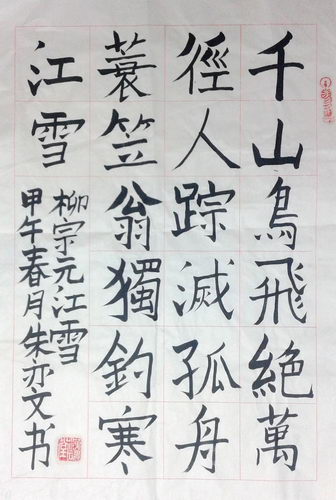 千山鳥飛絕萬
徑人踪滅孤舟
蓑笠翁獨釣寒
江雪
柳宗元江雪
甲午春月朱亦文书